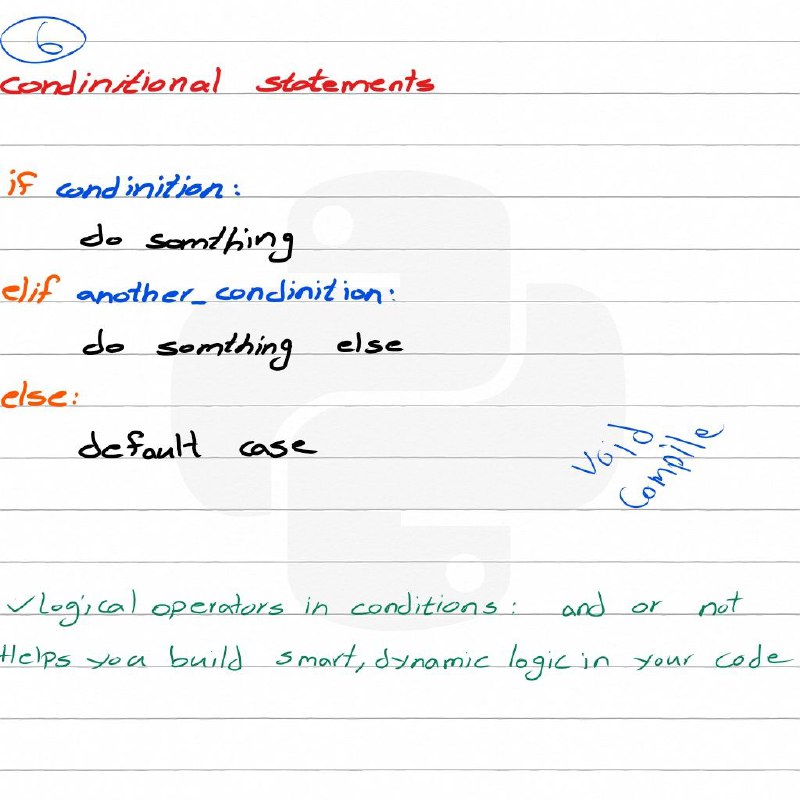 6
Condinitional statements
if condinition:
do somthing
elif another_condinition:
do somthing else
else:
default case
Void
Compile
✓Logical operators in conditions: and or not
Helps you build smart, dynamic logic in your code